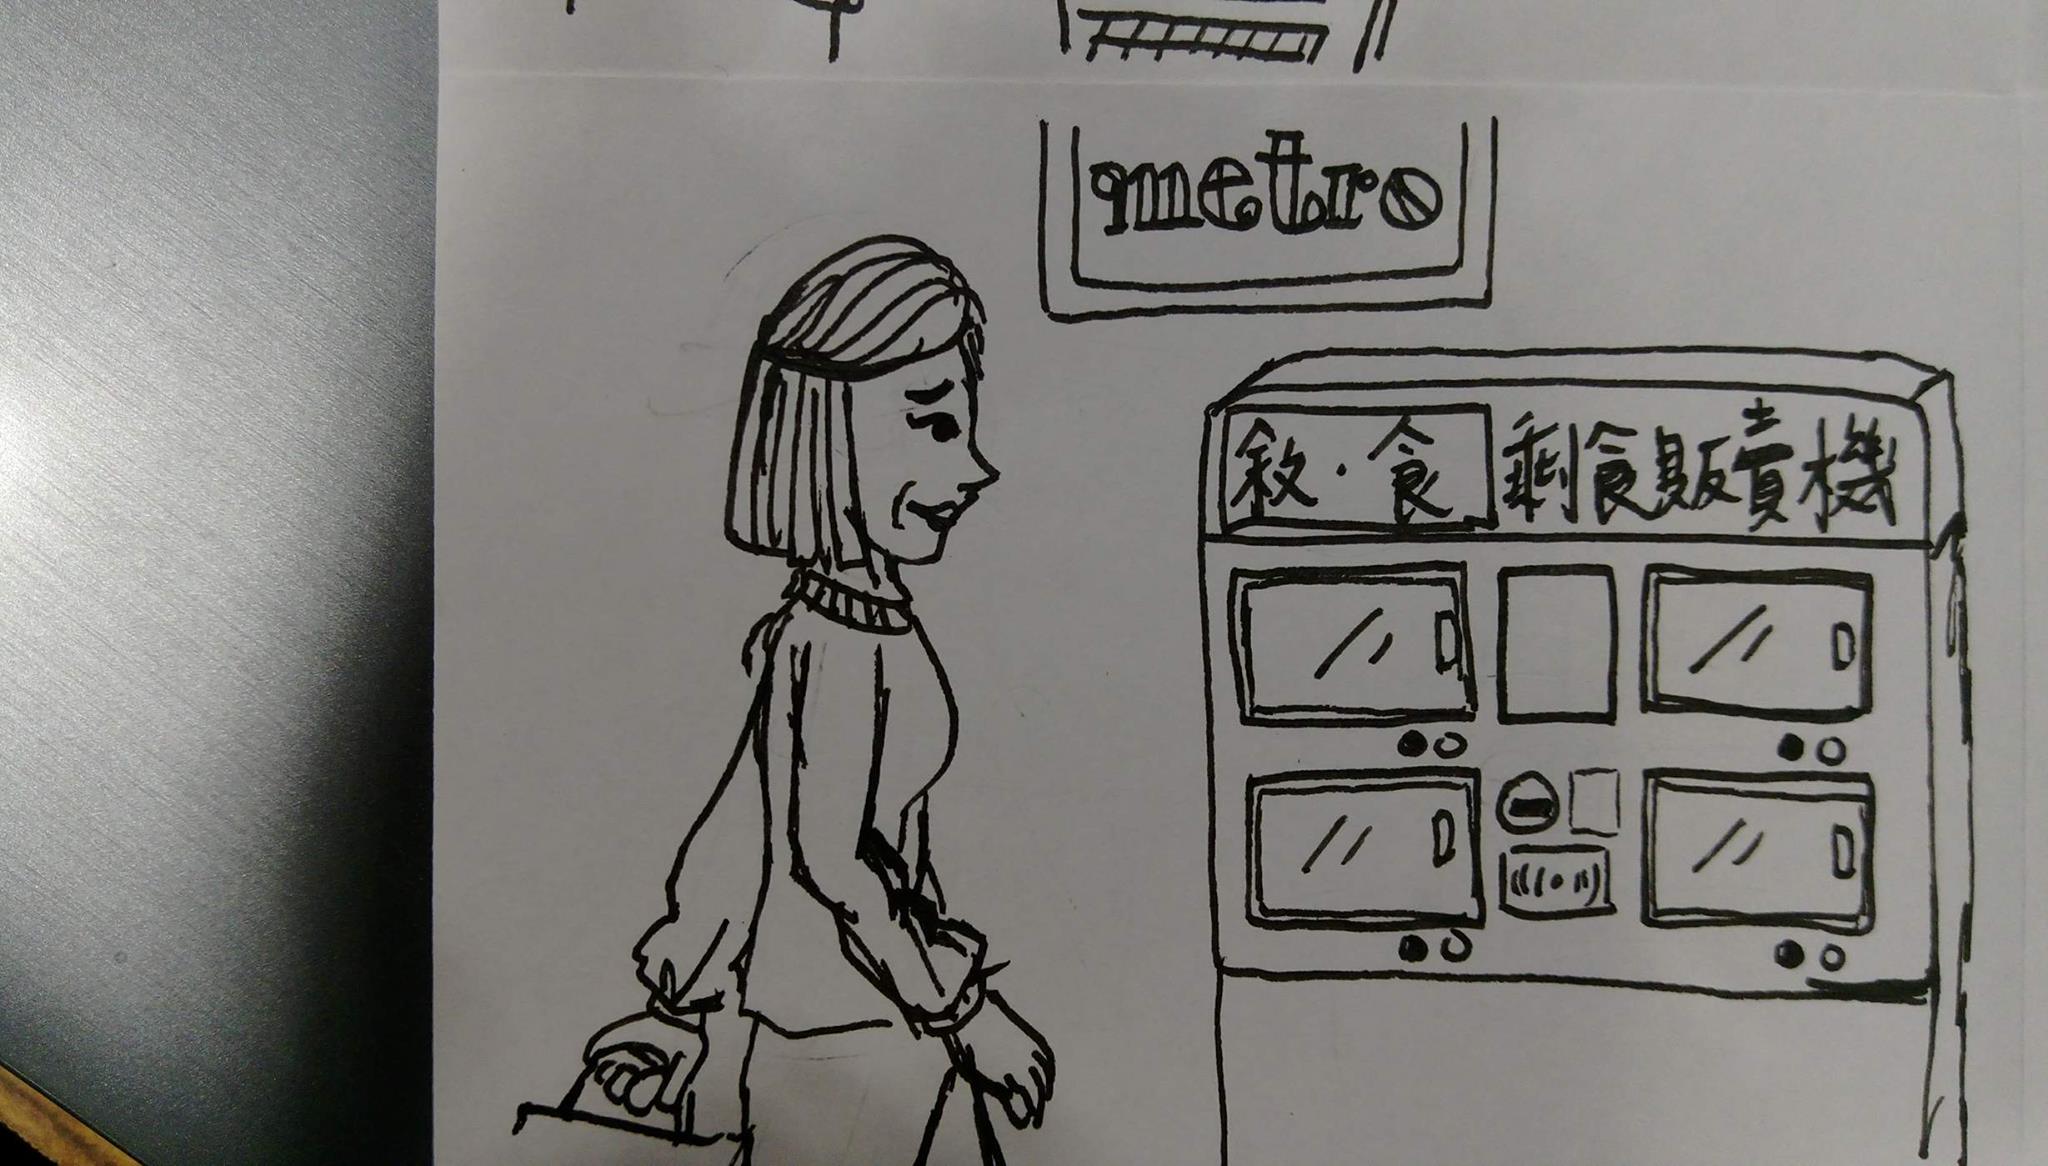 metro
敘·食 剩食販賣機